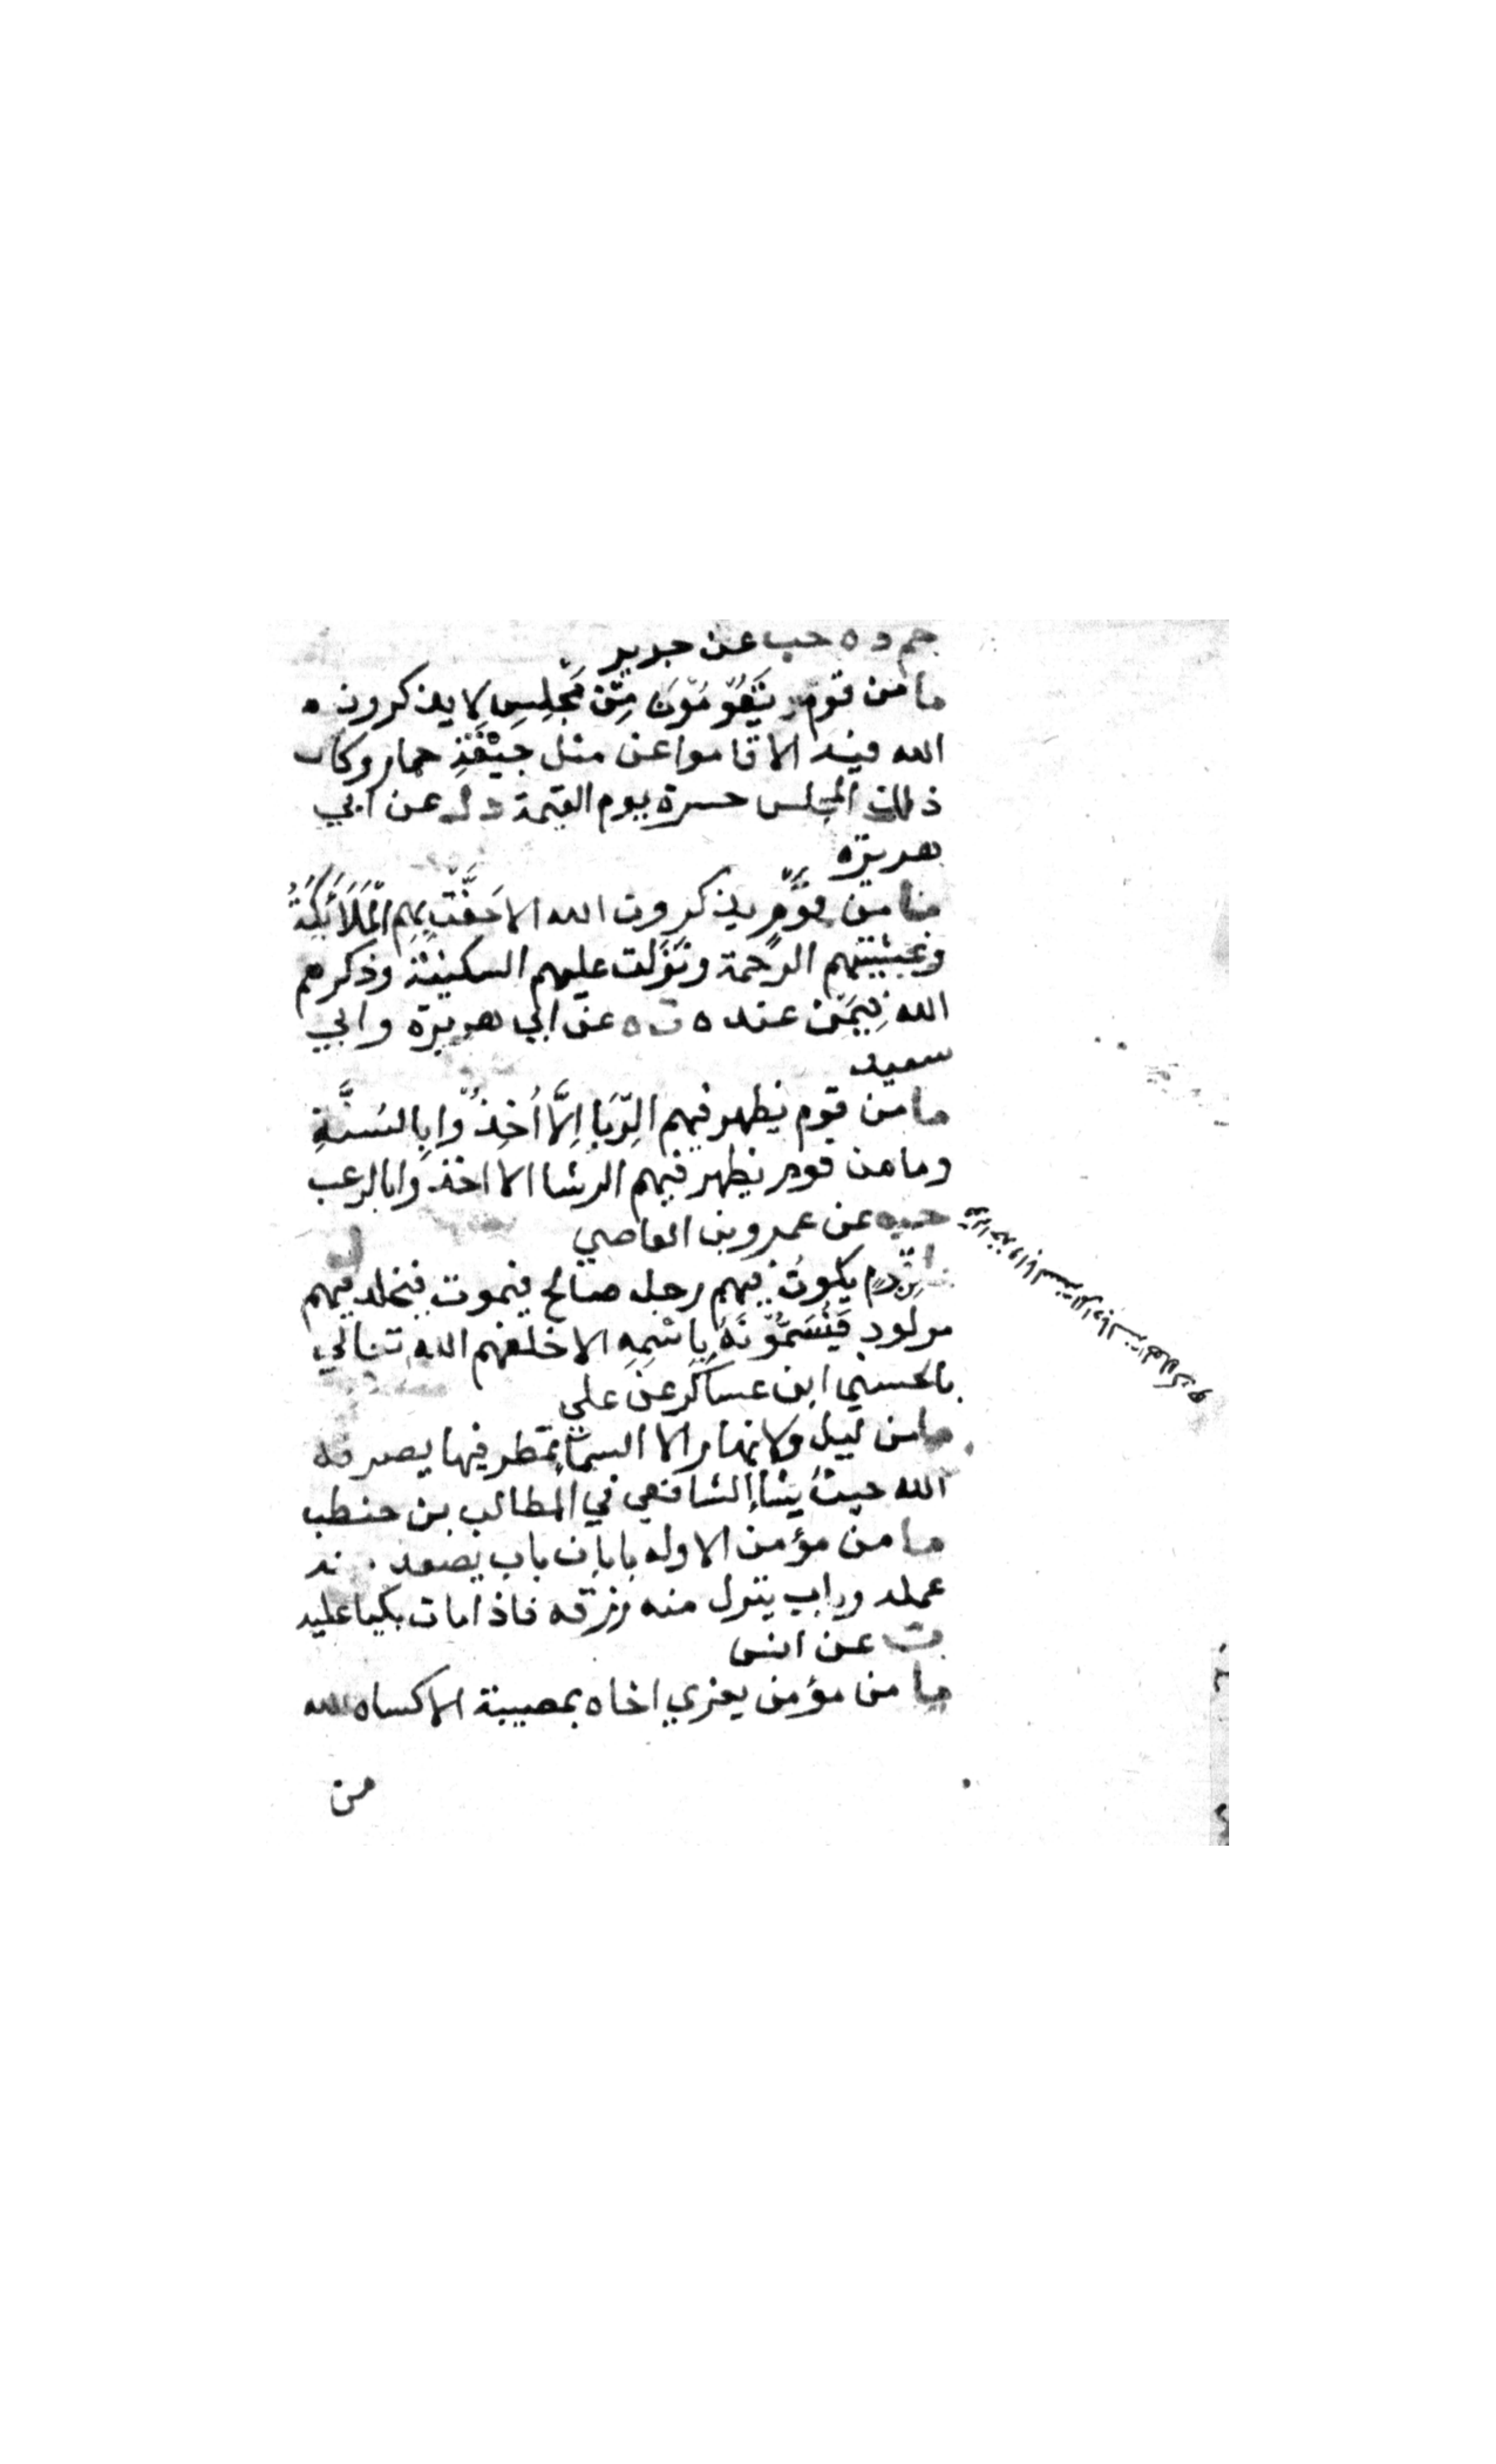 حم د ه حب عن جرير
ما من قوم يَقُوْمُوْنَ مِنْ مَجْلِسٍ لا يذكرون
الله فيه الا قاموا عن مثل جِيْفَةِ حمار وكان
ذلك المجلس حسرة يوم القيمة د ك عن ابي
هريرة
ما من قَوْمٍ يذكرون الله الا حَفَّتْ بِهِمُ الْمَلَائِكَةُ
وغشيتهم الرحمة ونزلت عليهم السكينة وذكرهم
الله فِيْمَنْ عنده ت ه عن ابي هريرة وابي
سعيد
ما من قوم يظهر فيهم الرِّبَا اِلَّا اُخِذُوْا بِالسَّنَةِ
وما من قوم يظهر فيهم الرشا الا اخذوا بالرعب
حم عن عمرو بن العاصي
يكون فيهم رجل صالح فيموت فيخلف فيهم
مولود فَيُسَمُّوْنَهُ بِاسْمِهِ الا خلفهم الله تعالي
بالحسني ابن عساكر عن علي
ما من ليل ولا نهار الا السما تمطر فيها يصرفه
الله حيث يشا الشافعي في المطالب بن حنطب
ما من مؤمن الا وله بابان باب يصعد منه
عمله وباب ينزل منه رزقه فاذا مات بكيا عليه
ت عن انس
ما من مؤمن يعزي اخاه بمصيبة الا كساه الله
من